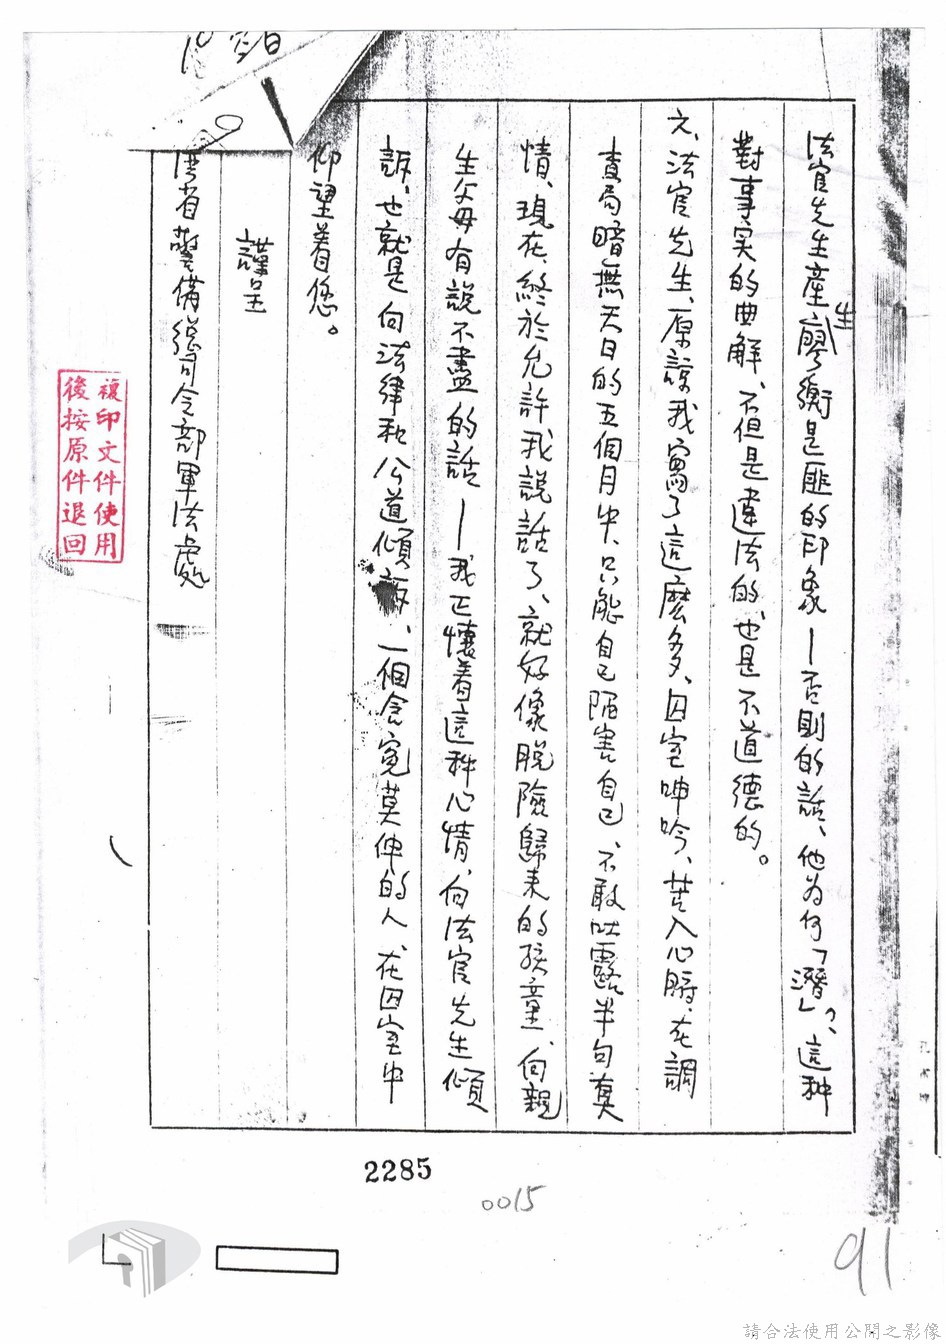 法官先生產生廖衡是匪的印象—否則的話、他为何「潛」?、這种
對事实的曲解、不但是違法的、也是不道德的。
六、法官先生、原諒我寫了這麼多、囚室呻吟、苦入心脾、在調
查局暗無天日的五個月中、只能自己陷害自己、不敢吐露半句真
情、現在、終於允許我說話了、就好像脫險歸来的孩童、向親
生父母有說不盡的話—我正懷着這种心情、向法官先生傾
訴、也就是向法律和公道傾訴、一個含冤莫伸的人、在囚室中
仰望着您。
謹呈
湾省警備總司令部軍法處
複印文件使用
後按原件退回
2285
0015
91
請合法使用公開之影像